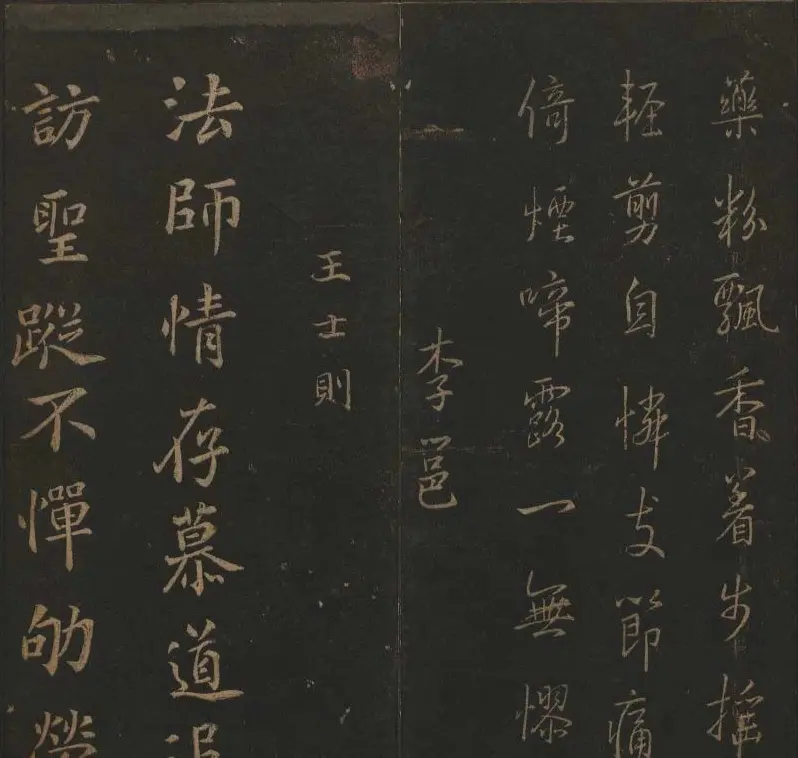 藥粉飄香著步搖
輕剪自憐支節痛
倚煙啼露一無憀
李邕
王士則
法師情存慕道追
訪聖蹤不憚劬勞